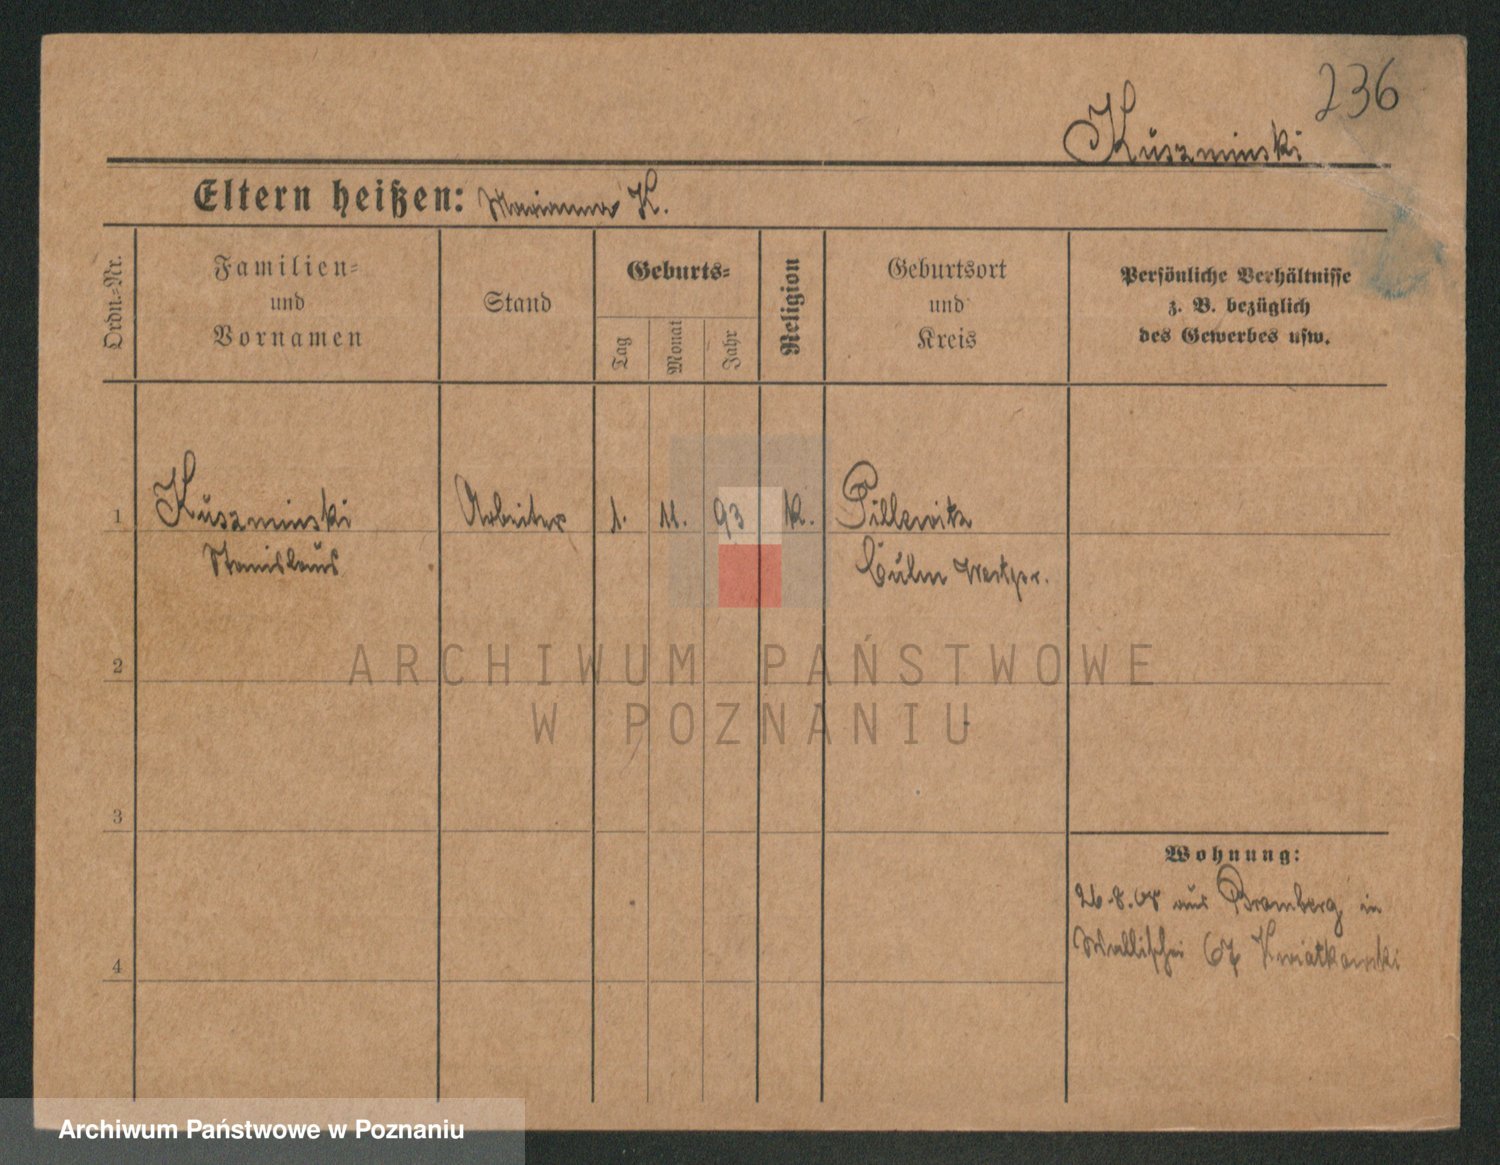 236
Kuszminski
Eltern heißen: Marianna K.
Ordn.-Nr.
Familien-
und
Vornamen
Stand
Geburts-
Tag
Monat
Jahr
Religion
Geburtsort
und
Kreis
Persönliche Verhältnisse
z. B. bezüglich
des Gewerbes usw.
1 Kuszminski Arbeiter 1. 11. 93 k. Pillewitz
Stanislaus Culm Westpr.
2
ARCHIWUM PAŃSTWOWE
W POZNANIU
3
Wohnung:
26.8.08 aus Bromberg in
Wallischei 67 Kwiatkowski
4
Archiwum Państwowe w Poznaniu